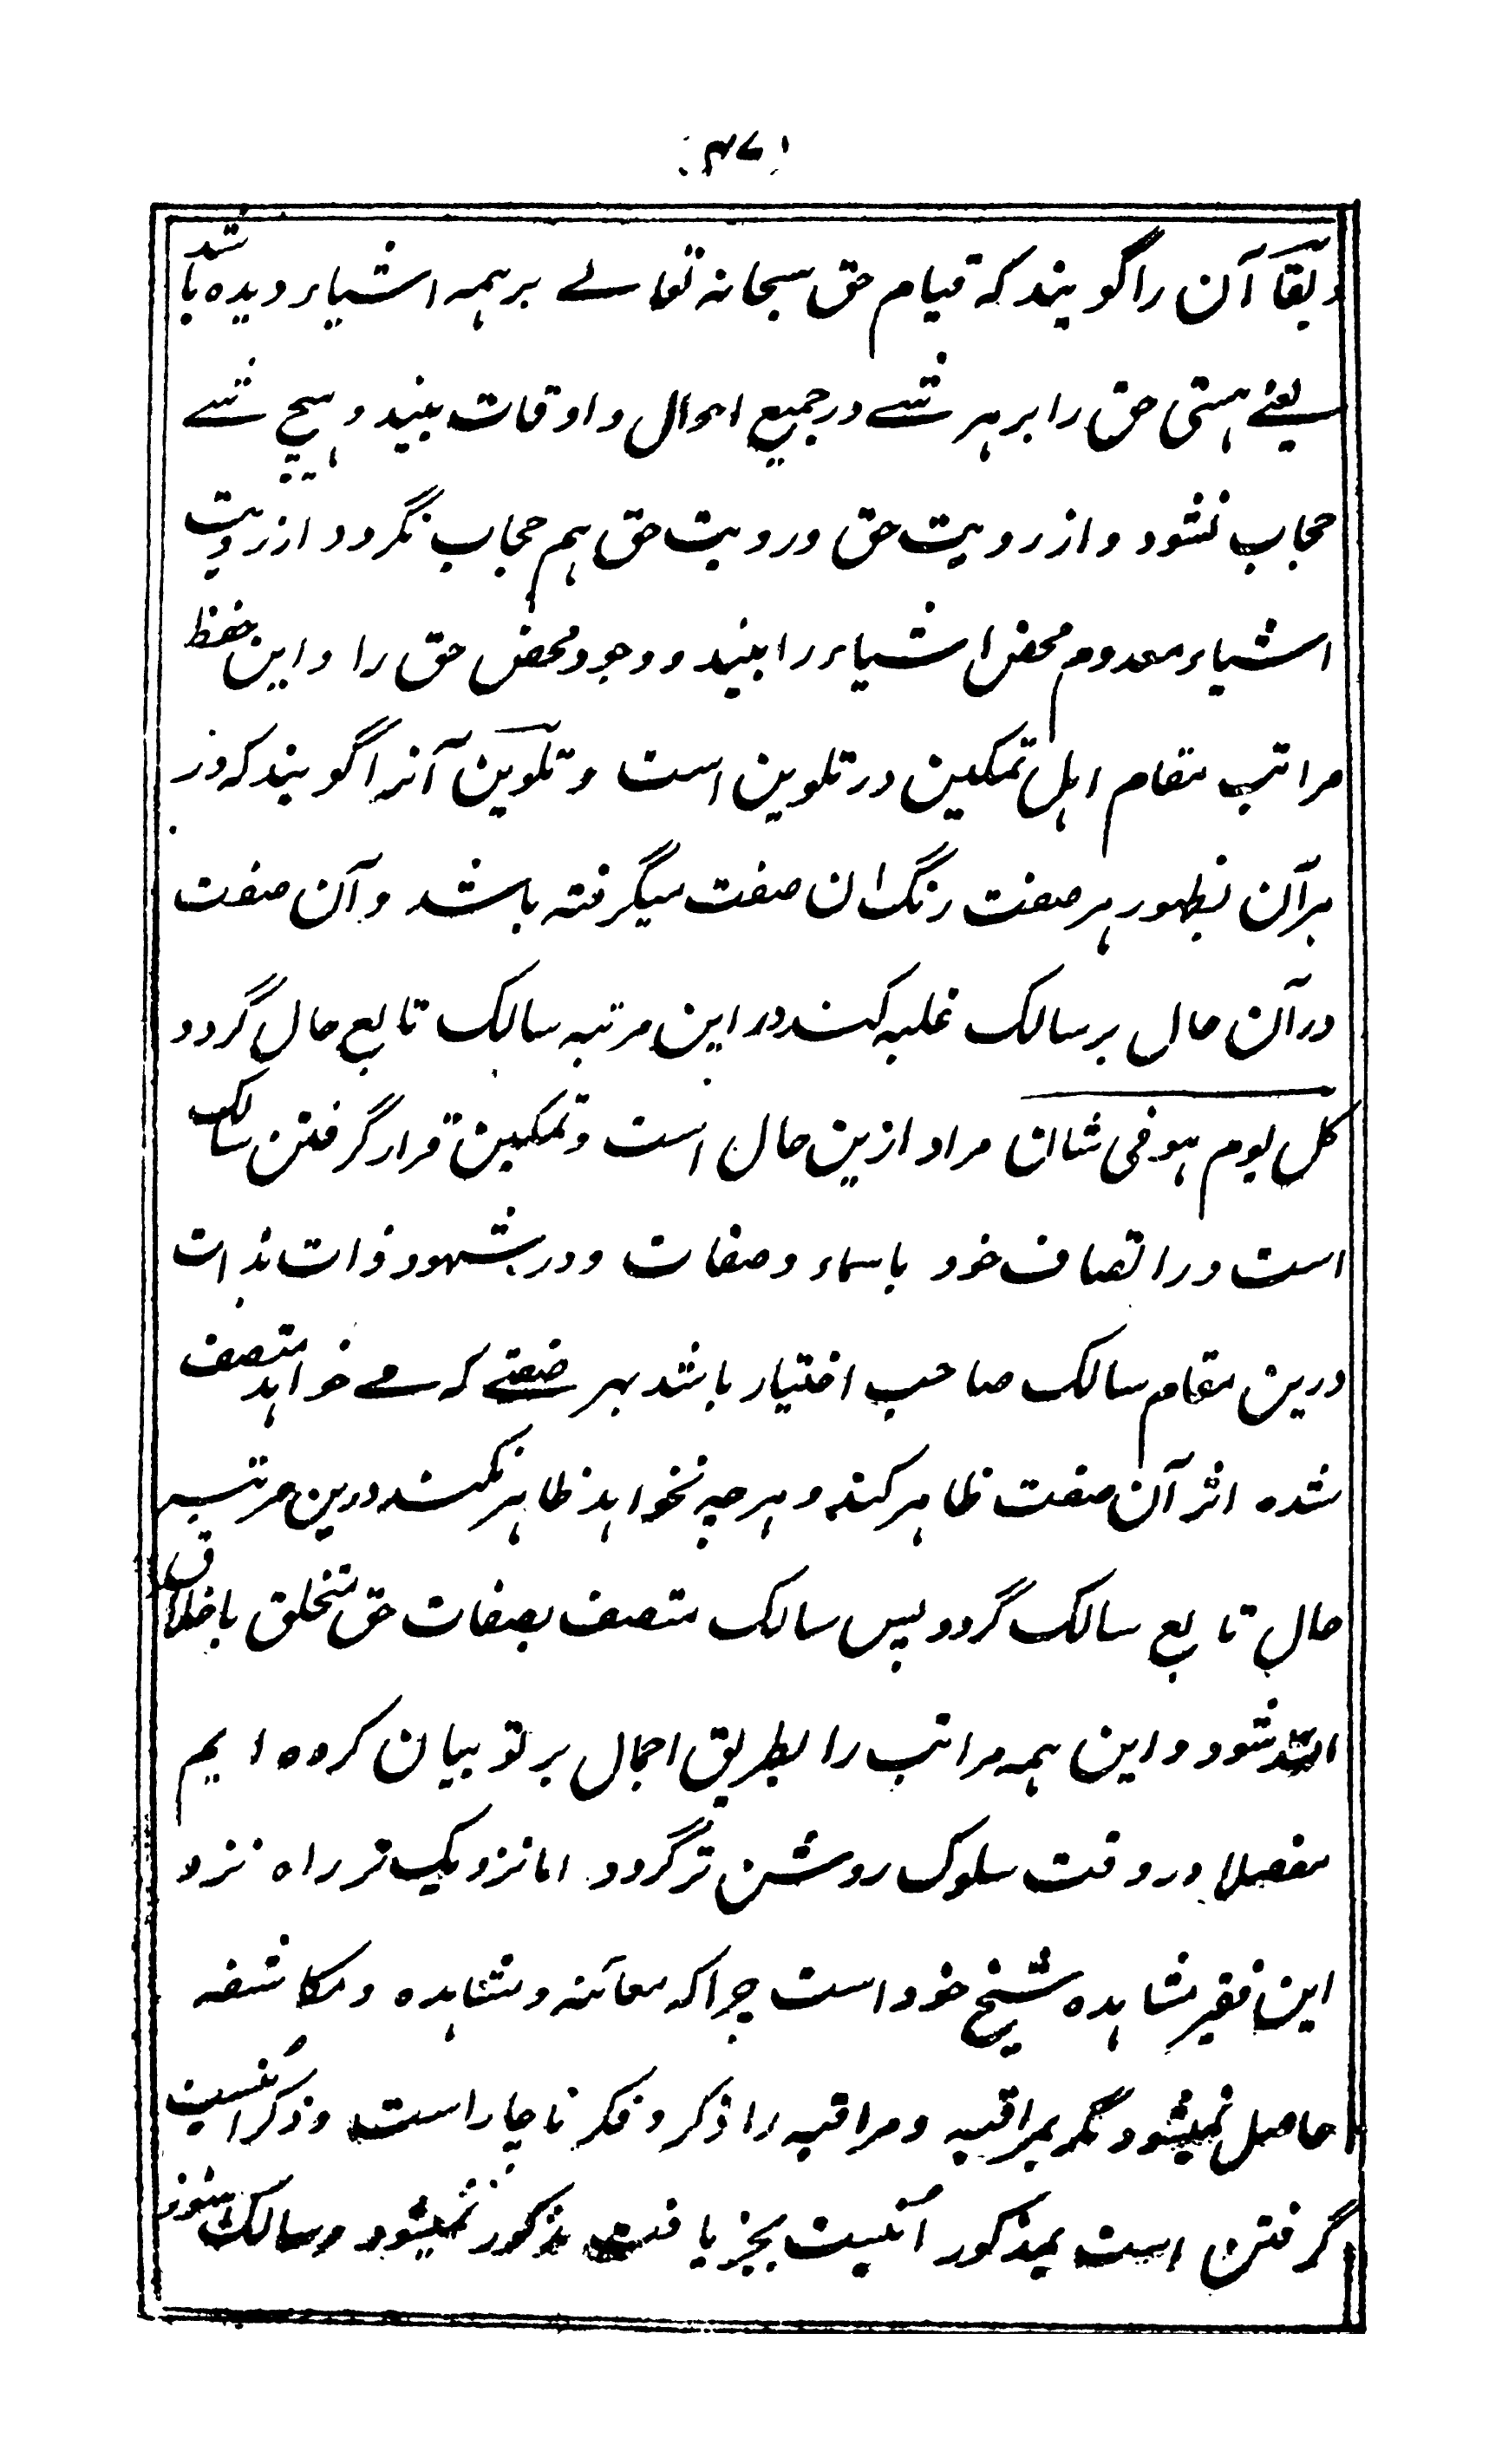 و بقا آن را گویند که قیام حق سبحانه تعالے بر همه اشیاء دیده باشد
یعنے هستی حق را بر هر شے در جمیع احوال و اوقات بیند و هیچ شے
حجاب نشود و از رویت حق و رویت حق هم حجاب نگردد از رویت
اشیاء معدوم محض اشیاء را بیند و وجود محض حق را و این حفظ
مراتب مقام اهل تمکین در تلوین است و تلوین آنرا گویند که در
هر آن بظهور هر صفت رنگ ان صفت میگرفته باشد و آن صفت
در آن حال بر سالک غلبه کند در این مرتبه سالک تابع حال گردد
کل یوم هو فی شان مراد ازین حال است و تمکین قرار گرفتن سالک
است در اتصاف خود باسماء و صفات و در شهود ذات بذات
درین مقام سالک صاحب اختیار باشد بهر صفتے که مے خواهد متصف
شده اثر آن صفت ظاهر کند و هر چه نخواهد ظاهر نکند درین مرتبه
حال تابع سالک گردد پس سالک متصف بصفات حق متخلق باخلاق
الله شود و این همه مراتب را بطریق اجمال بر تو بیان کرده ایم
مفصلا در وقت سلوک روشن تر گردد اما نزدیک تر راه نزد
این فقیر مشاهده شیخ خود است چرا که معائنه و مشاهده و مکاشفه
حاصل نمیشود مگر بمراقبه و مراقبه را ذکر و فکر ناچار است و ذکر انسیت
گرفتن است بمذکور انسیت بجز یافت مذکور نمیشود و سالک هنوز